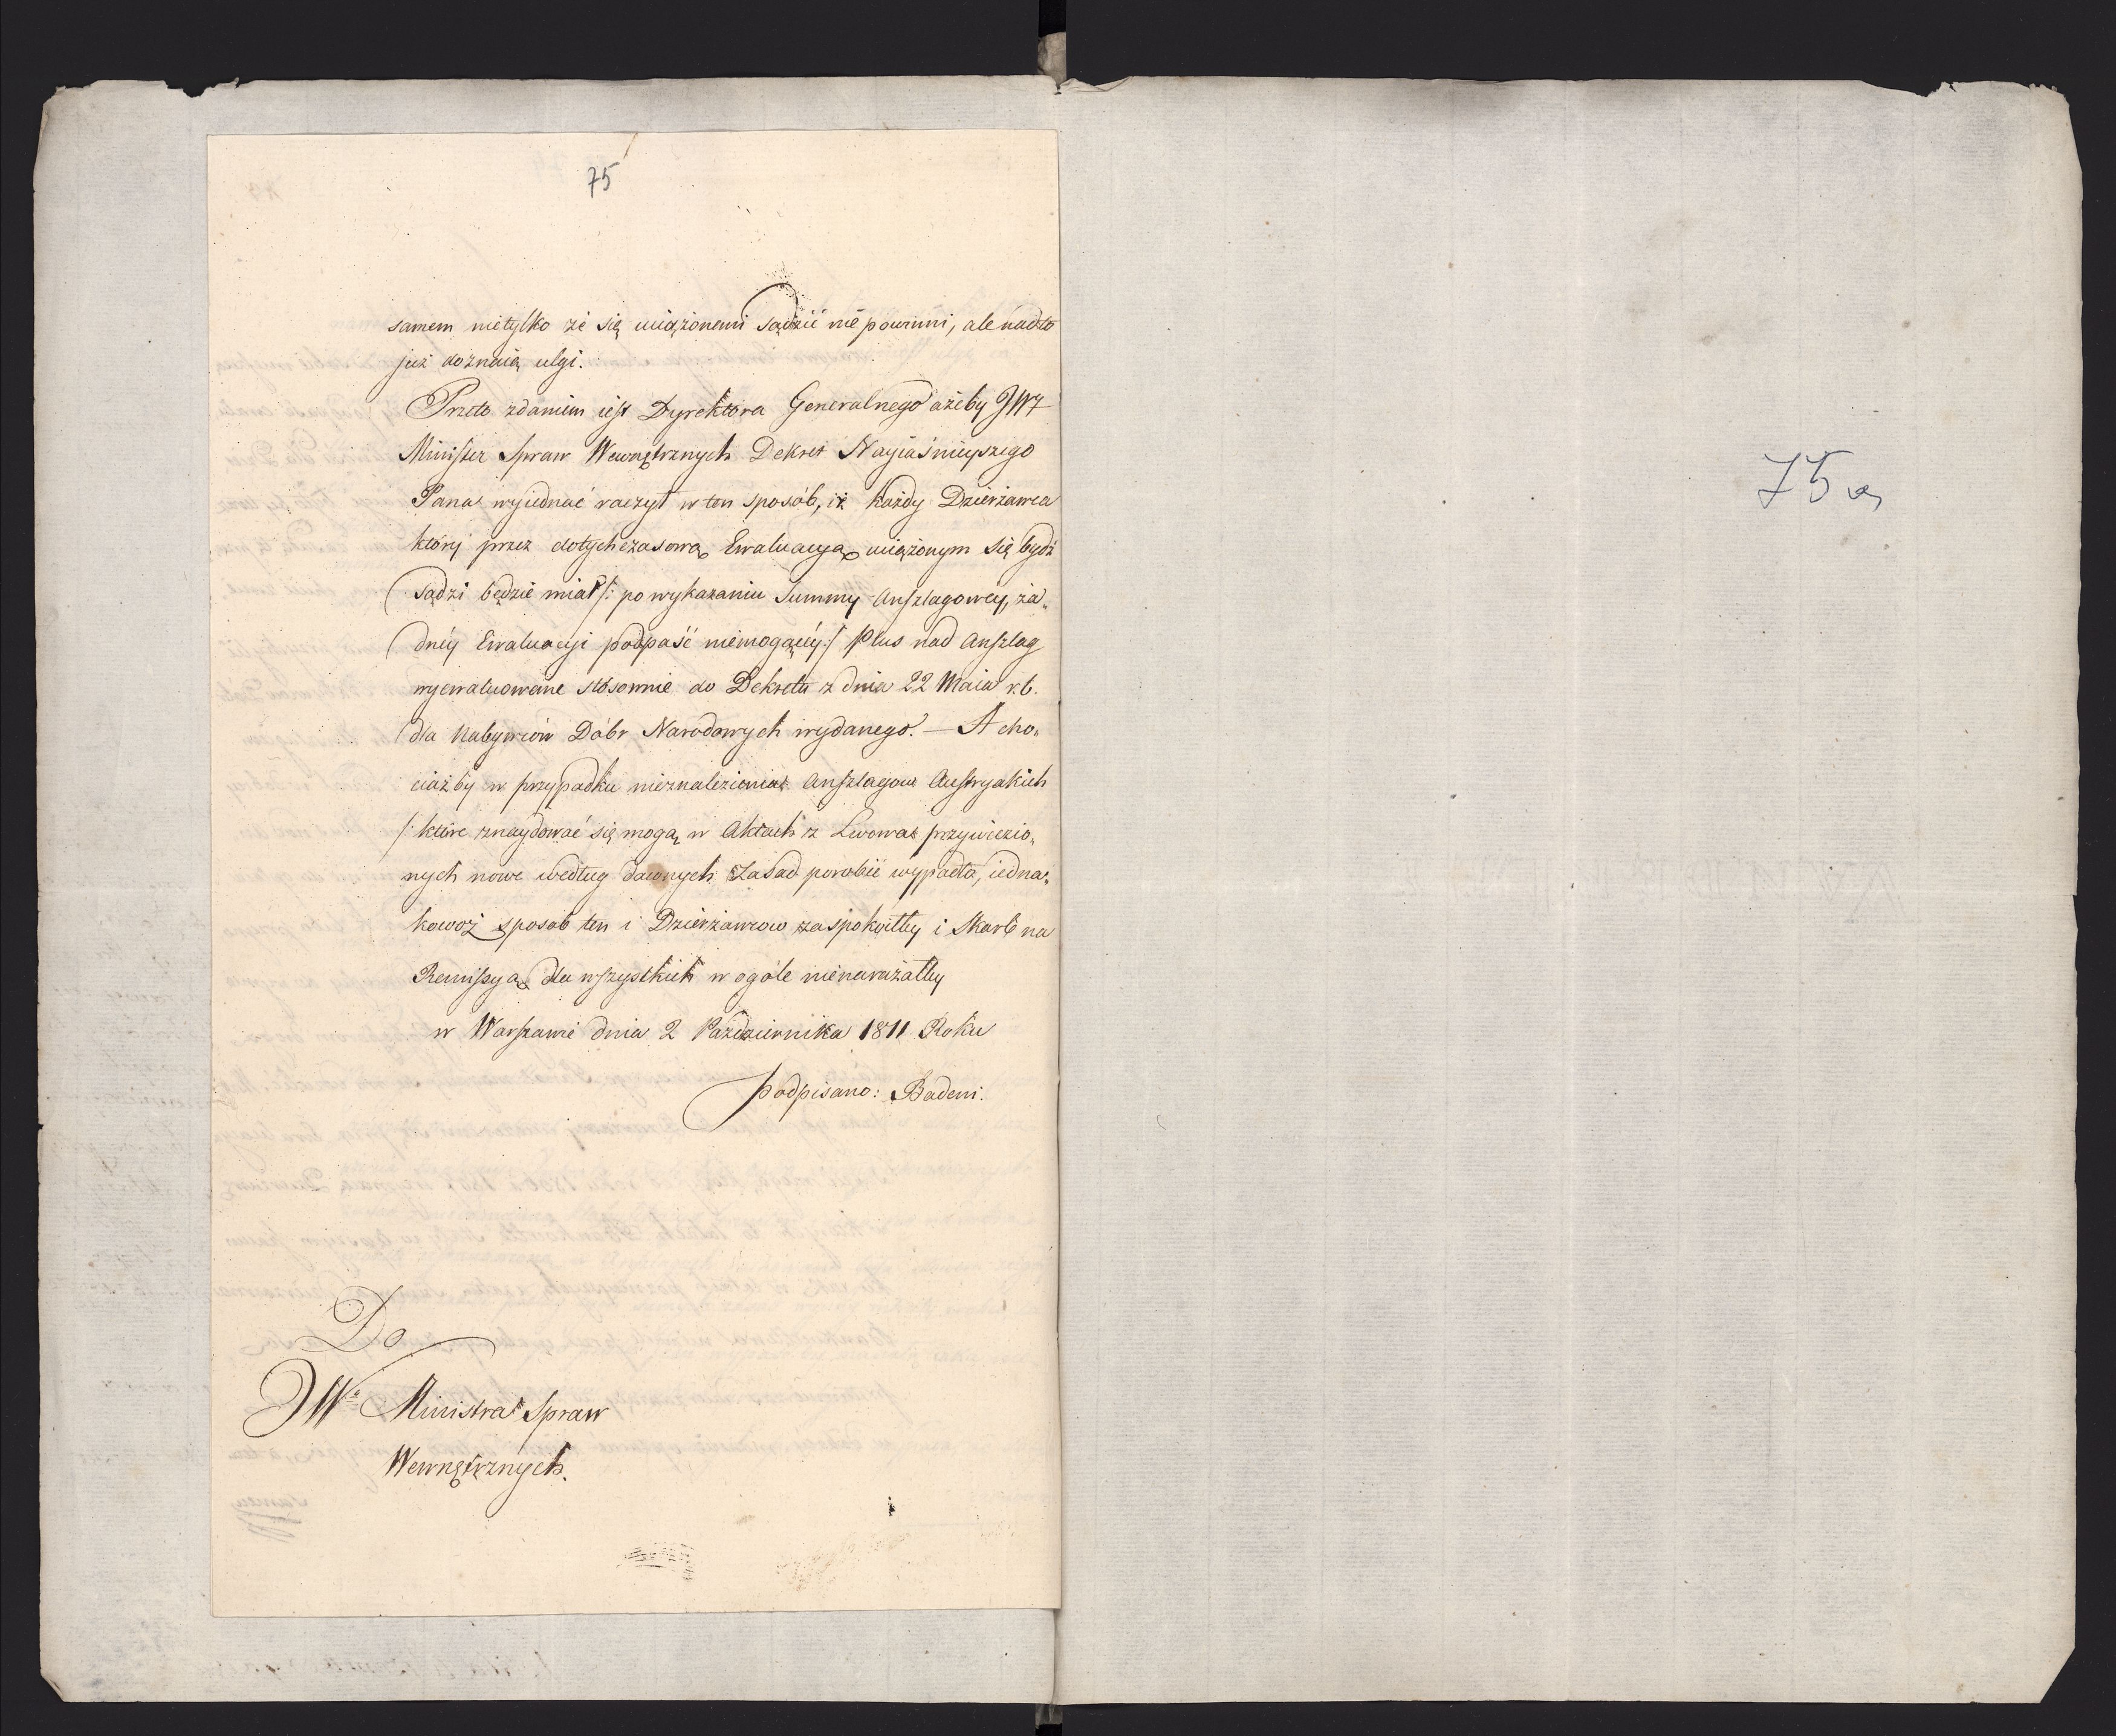 75
samem nietylko że się uciążonemi sądzić nie powinni, ale nadto
już doznaią ulgi.
Przeto zdaniem iest Dyrektora Generalnego ażeby JW
Minister Spraw Wewnętrznych Dekret Nayiaśnieyszego
Pana wyiednać raczył w ten sposób, iż każdy Dzierżawca
który przez dotychczasową Ewaluacyą uciążonym się bydź
sądzi będzie miał /: po wykazaniu Summy Anszlagowey, ża„
dney Ewaluacyi podpaść niemogącéy :/ Plus nad Anszlag
wyewaluowane stósownie do Dekretu z dnia 22 Maia r.b.
dla Nabywców Dóbr Narodowych wydanego. — A cho„
ciażby w przypadku nieznalezienia Anszlagow Austryakich
/: które znaydować się mogą w Aktach z Lwowa przywiezio„
nych nowe według dawnych Zasad porobić wypadło, iedna„
kowoż sposob ten i Dzierżawcow zaspokoiłby i Skarb na
Remissyą dla wszystkich w ogóle nienarażałby
w Warszawie dnia 2 Października 1811 Roku
podpisano: Badeni.
Do
JW. Ministra Spraw
Wewnętrznych.
75a